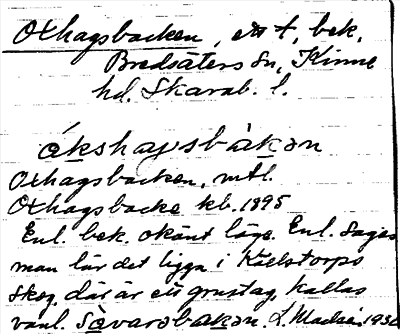 Oxhagsbacken, ett t, bek.
Bredsäters Sn, Kinne
hd. Skarab. l.
ókshaɡsbàkən
Oxhagsbacken, mtl.
Oxhagsbacke kb. 1895
Enl. bek. okänt läge. Enl. Sages
man lär det ligga i Källstorps
skog, där är ett grustag, kallas
vanl. Såvarsbakən. 193